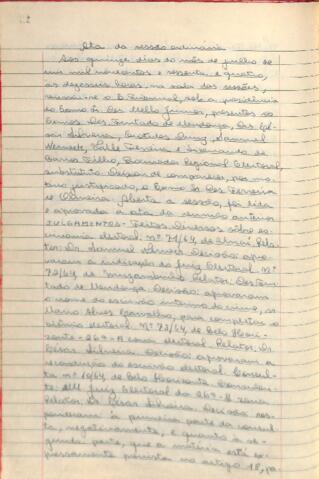 Ata da sessão ordinária
Aos quinze dias do mês de julho de
mil novecentos e sessenta e quatro,
às dezesseis horas, na sala das sessões,
reuniu-se o Tribunal, sob a presidência
do Exmo Sr. Des. Mello Júnior, presentes os
Exmos. Des. Furtado de Mendonça, Drs. Cé-
sar Silveira,
Werneck, Valle Ferreira e de
Barros Filho, Procurador Regional Eleitoral,
substituto. Deixou de comparecer, por mo-
tivo justificado, o Exmo Sr. Des. Ferreira
de Oliveira. Aberta a sessão, foi lida
e aprovada a ata da reunião anterior.
JULGAMENTOS - Feitos Diversos sôbre es-
crivania eleitoral: nº 71/64, de Rela-
tor: Dr. Samuel Decisão: apro-
varam a indicação do Juiz Eleitoral. Nº
72/64, de Muzambinho. Relator: Des. Fur-
tado de Mendonça. Decisão: aprovaram
o nome do escrivão interino do crime, sr.
Mário Alves Carvalho, para completar o
biênio eleitoral. Nº 73/64, de Belo Hori-
zonte - 26ª Zona eleitoral. Relator: Dr.
César Silveira. Decisão: aprovaram a
recondução do escrivão eleitoral. Consul-
ta nº 16/64, de Belo Horizonte. Consulen-
te: MM Juiz Eleitoral da 26ª Zona.
Relator: Dr. César Silveira. Decisão: res-
ponderam: à primeira parte da consul-
ta, negativamente, e quanto à se-
gunda parte, que a matéria está ex-
pressamente prevista no artigo 18, pa-